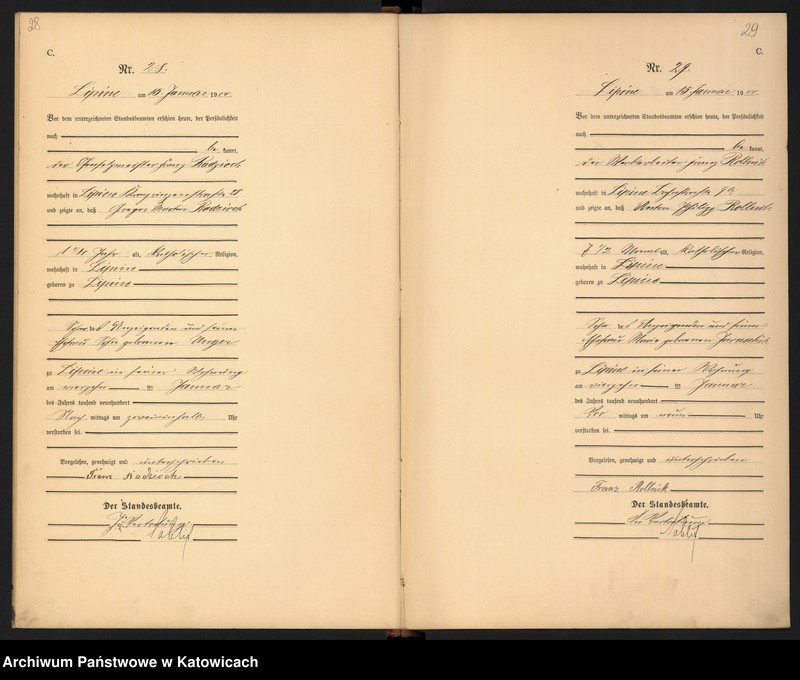 28
C.
Nr. 28.
Lipine am 15. Januar 1900
Vor dem unterzeichneten Standesbeamten erschien heute, der Persönlichkeit
nach
be kannt,
der Franz Radzioch
wohnhaft in Lipine 28
und zeigte an, daß Radzioch
Jahr alt, katholischer Religion,
wohnhaft in Lipine
geboren zu Lipine
Sohn des Anzeigenden und seiner
Ehefrau geborenen Unger
zu Lipine in seiner Wohnung
am vierzehnten Januar
des Jahres tausend neunhundert
Nach mittags um Uhr
verstorben sei.
Vorgelesen, genehmigt und unterschrieben
Franz Radzioch
Der Standesbeamte.
In Vertretung
29
C.
Nr. 29.
Lipine am 15 Januar 1900
Vor dem unterzeichneten Standesbeamten erschien heute, der Persönlichkeit
nach
be kannt,
der Franz Rollnik
wohnhaft in Lipine
und zeigte an, daß Anton Philipp Rollnik
1/2 Monat alt, katholischer Religion,
wohnhaft in Lipine
geboren zu Lipine
Sohn des Anzeigenden und seiner
Ehefrau Marie geborenen
zu Lipine in seiner Wohnung
am vierzehnten Januar
des Jahres tausend neunhundert
Vor mittags um neun Uhr
verstorben sei.
Vorgelesen, genehmigt und unterschrieben
Franz Rollnik
Der Standesbeamte.
In Vertretung
Archiwum Państwowe w Katowicach